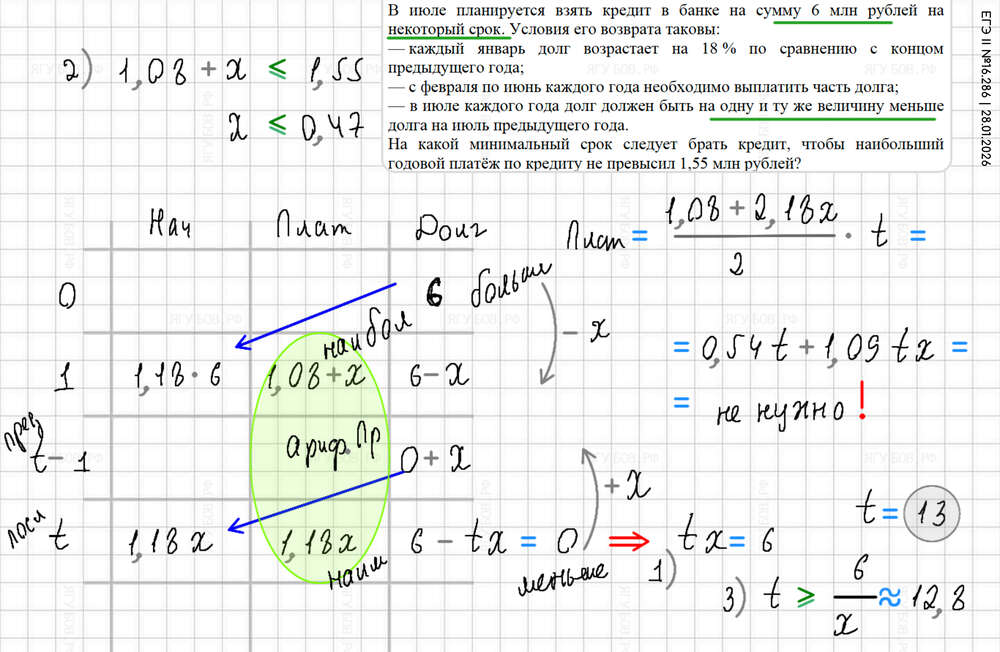 В июле планируется взять кредит в банке на сумму 6 млн рублей на
некоторый срок. Условия его возврата таковы:
— каждый январь долг возрастает на 18 % по сравнению с концом
предыдущего года;
— с февраля по июнь каждого года необходимо выплатить часть долга;
— в июле каждого года долг должен быть на одну и ту же величину меньше
долга на июль предыдущего года.
На какой минимальный срок следует брать кредит, чтобы наибольший
годовой платёж по кредиту не превысил 1,55 млн рублей?
ЕГЭ II №16.286 | 28.01.2026
2) 1,08 + x ≤ 1,55
x ≤ 0,47
Нач Плат Долг
0 6 больше
наибол
1 1,18·6 1,08+x 6−x
− x
пред
t−1 ариф. Пр 0+x
+ x
посл
t 1,18x 1,18x 6 − tx = 0 ⇒ tx = 6
наим меньше 1)
Плат = (1,08 + 2,18x)/2 · t =
= 0,54t + 1,09tx =
= не нужно!
t = 13
3) t ≥ 6/x ≈ 12,8
ЯГУБОВ.РФ